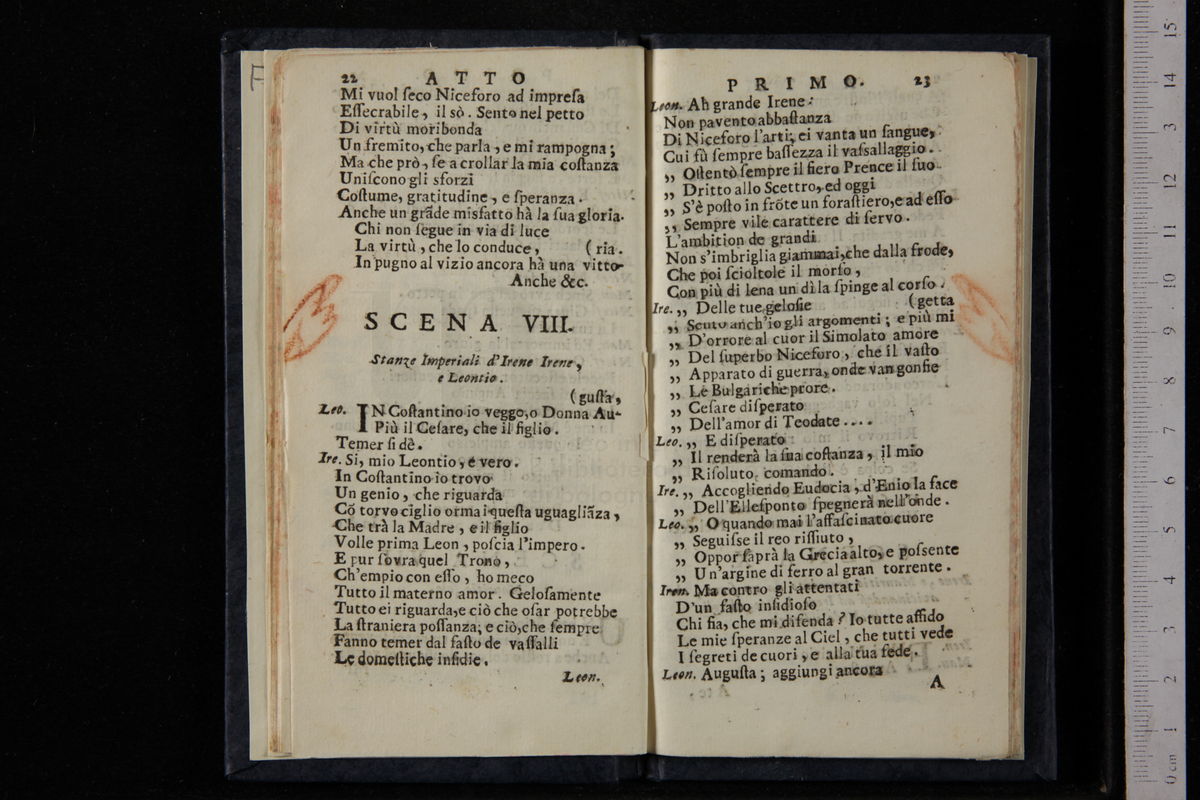 22 ATTO
Mi vuol ſeco Niceforo ad impreſa
Eſſecrabile, il sò. Sento nel petto
Di virtù moribonda
Un fremito, che parla, e mi rampogna;
Ma che prò, ſe a crollar la mia coſtanza
Uniſcono gli sforzi
Coſtume, gratitudine, e ſperanza.
Anche un grãde misfatto hà la ſua gloria.
Chi non ſegue in via di luce
La virtù, che lo conduce, (ria.
In pugno al vizio ancora hà una vitto-
Anche &c.
SCENA VIII.
Stanze Imperiali d'Irene Irene,
e Leontio.
(guſta,
Leo. IN Coſtantino io veggo, o Donna Au-
Più il Ceſare, che il figlio.
Temer ſi dè.
Ire. Si, mio Leontio, é vero.
In Coſtantino io trovo
Un genio, che riguarda
Cõ torvo ciglio ormai queſta uguagliãza,
Che trà la Madre, e il figlio
Volle prima Leon, poſcia l'impero.
E pur ſovra quel Trono,
Ch'empio con eſſo, ho meco
Tutto il materno amor. Geloſamente
Tutto ei riguarda, e ciò che oſar potrebbe
La ſtraniera poſſanza; e ciò, che ſempre
Fanno temer dal faſto de vaſſalli
Le domeſtiche inſidie.
Leon.
PRIMO. 23
Leon. Ah grande Irene:
Non pavento abbaſtanza
Di Niceforo l'arti; ei vanta un ſangue,
Cui fù ſempre baſſezza il vaſsallaggio.
,, Oſtentò ſempre il fiero Prence il ſuo
,, Dritto allo Scettro, ed oggi
,, S'è poſto in frõte un foraſtiero, e ad eſſo
,, Sempre vile carattere di ſervo.
L'ambition de grandi
Non s'imbriglia giammai, che dalla frode,
Che poi ſcioltole il morſo,
Con più di lena un dì la ſpinge al corſo.
Ire. ,, Delle tue geloſie (getta
,, Sento anch'io gli argomenti; e più mi
,, D'orrore al cuor il Simolato amore
,, Del ſuperbo Niceforo, che il vaſto
,, Apparato di guerra, onde van gonfie
,, Le Bulgariche prore.
,, Ceſare diſperato
,, Dell'amor di Teodate....
Leo. ,, E diſperato
,, Il renderà la ſua coſtanza, il mio
,, Riſoluto comando.
Ire. ,, Accogliendo Eudocia, d'Enio la face
,, Dell'Elleſponto ſpegnerà nell'onde.
Leo. ,, O quando mai l'affaſcinato cuore
,, Seguiſse il reo rifſiuto,
,, Oppor ſaprà la Grecia alto, e poſsente
,, Un'argine di ferro al gran torrente.
Iren. Ma contro gli attentati
D'un faſto inſidioſo
Chi fia, che mi difenda? Io tutte affido
Le mie ſperanze al Ciel, che tutti vede
I ſegreti de cuori, e alla tua fede.
Leon. Auguſta; aggiungi ancora
A